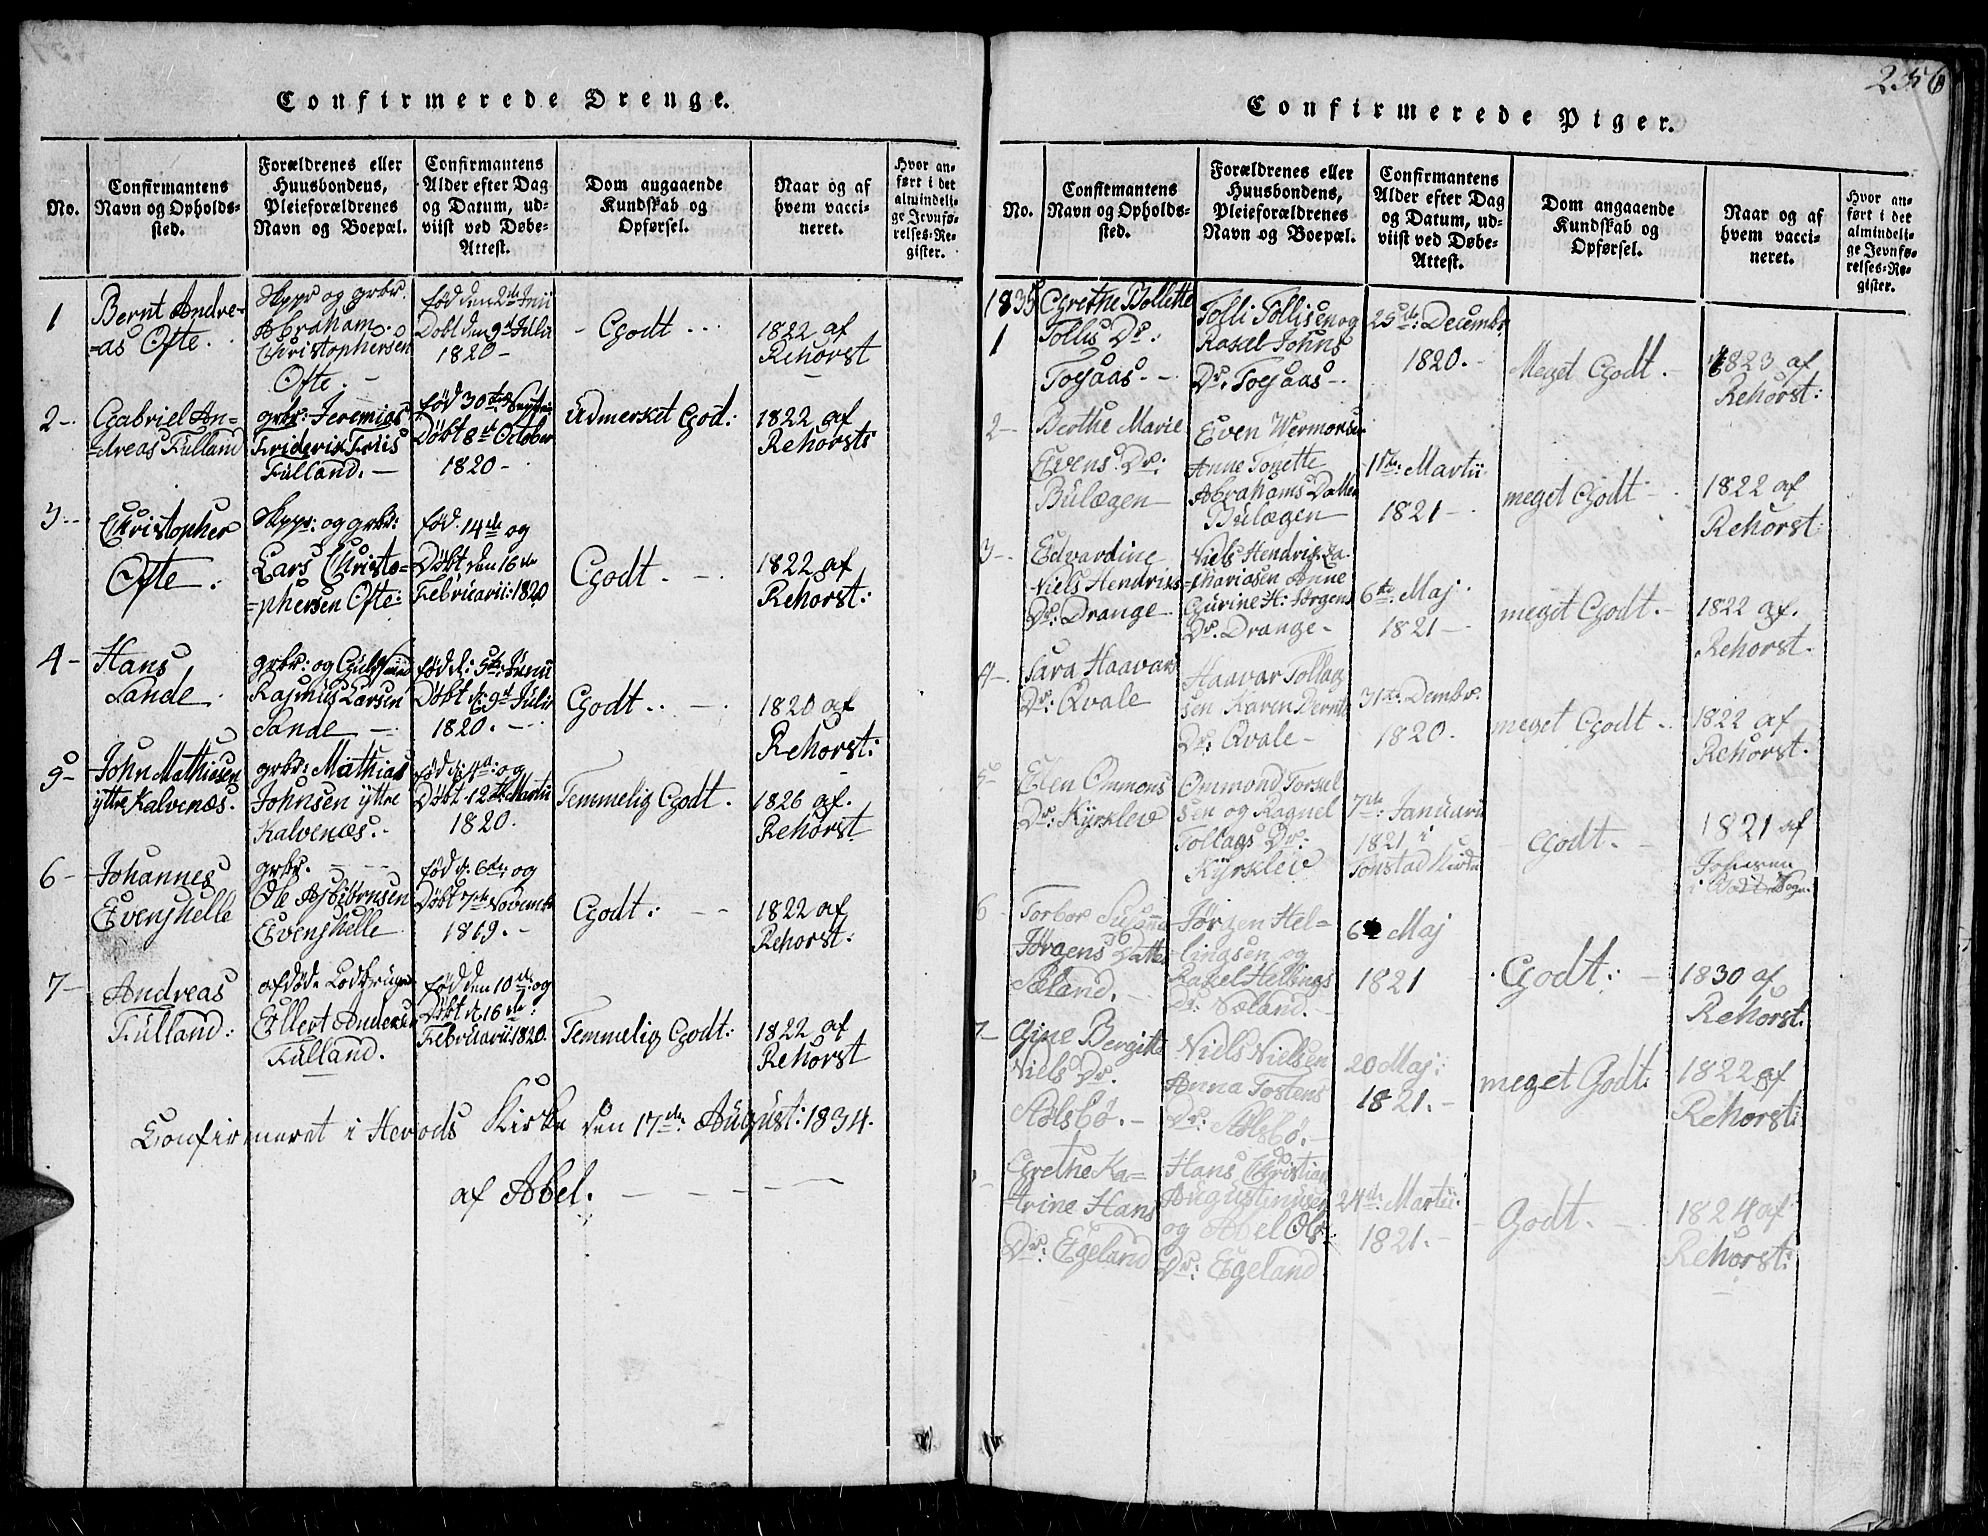 Confirmerede Drenge.
No.
Confirmantens
Navn og Opholds-
sted.
Forældrenes eller
Huusbondens,
Pleieforældrenes
Navn og Boepæl.
Confirmantens
Alder efter Dag
og Datum, ud-
viist ved Døbe-
Attest.
Dom angaaende
Kundskab og
Opførsel.
Naar og af
hvem vacci-
neret.
Hvor an-
ført i det
almindeli-
ge Jevnfø-
relses-Re-
gister.
1
Bernt Andre-
=as Ofte.
Skppr og grbr.
Abraham
Christophersen
Ofte. -
fød den 2de Junii
Døbt den 9d Julii
1820 -
- Godt ...
1822 af
Rehorst
2 -
Gabriel An-
=dreas Fulland
grbr: Jeremias
Friderix Friis
Fulland. -
fød 30te
Døbt 8d October
1820 -
Udmerket God:
1822 af
Rehorst
3 -
Christopher
Ofte :
Skppr: og grbr:
Lars Christo=
=phersen Ofte:
fød. 14de og
Døbt den 16de
Februarii: 1820
Godt. -
1822 af
Rehorst:
4 -
Hans
Sande.
grbr: og
Rasmus Larsen
Sande -
fød d: 5te Junii
Døbt d: 9d Julii
1820. -
Godt .. -
1820 af
Rehorst:
5 -
John Mathiesen
ÿttre Kalvenæs.
grbr: Mathias
Johnsen ÿttre
Kalvenæs. -
fød d: 4d: og
Døbt 12te Martii
1820.
Temmelig Godt.
1826 af.
Rehorst
6 -
Johannes
Evenshelle
grbr. - -
Ole Asbiørnsen
Evenshelle
fød d. 6te: og
Døbt 7de Novembr
1819. -
Godt: - -
1822 af
Rehorst:
7 -
Andreas
Fulland:
afdøde
Ellert Andersen
Fulland.
fød den 10de: og
Døbt d. 16de:
Februarii: 1820.
Temmelig Godt:
1822 af
Rehorst
Confirmeret i Herods Kirke den 17de August: 1834.
af Abel. - - - -
256
Confirmerede Piger.
No.
Confirmantens
Navn og Opholds-
sted.
Forældrenes eller
Huusbondens,
Pleieforældrenes
Navn og Boepæl.
Confirmantens
Alder efter Dag
og Datum, ud-
viist ved Døbe-
Attest.
Dom angaaende
Kundskab og
Opførsel.
Naar og af
hvem vacci-
neret.
Hvor an-
ført i det
almindeli-
ge Jevnfø-
relses-Re-
gister.
1835
1
Grethe Bollette
Tollis Dr:
Toesaas. -
Tolli Tollisen og
Raxel Johns
Dr. Toesaas -
25de: Decembr
1820. -
Meget Godt -
1823 af
Rehorst:
2 -
Berthe Marie
Evens. Dr:
Bulægen
Even Wermonsen
Anne Tonette
Abrahams Datter
Bulægen
1ste: Martii
1821 -
meget Godt -
1822 af
Rehorst:
3 -
Edvardine
Niels Hendrixs
Dr: Drange -
Niels Hendrix Za-
=chariasen Anne
Gurine H: Jørgens
Dr. Drange -
6te: Maj
1821 -
meget Godt. -
1822 af.
Rehorst.
4 -
Sara Haavars
Dr: Qvale
Haavar Tollags
sen Karen
Dr: Qvale -
31te Dembr.
1820.
meget Godt -
1822 af
Rehorst.
5 -
Elen Ommons
Dr: Kÿrklev
Ommond Torsel
sen og Ragnel
Tollags Dr:
Kÿrklev
7de: Januarii
1821 i
Tonstad
Godt. -
1821 af
6 -
Torbor Susanne
Jørgens Datter
Sæland. -
Jørgen Hel-
lingsen og
Raxel Hellings
Dr: Sæland. -
6te Maj
1821
Godt: -
1830 af
Rehorst.
7 -
Gine Bergitte
Niels Dr.
Stølsbø. -
Niels Nielsen
Anna Tostens
Dr: Stølsbø. -
20 Maj:
1821. -
meget Godt:
1822 af
Rehorst:
Grethe Ka-
trine Hans
Dr: Egeland
Hans Christian
Augustinusen
og Abel Ols
Dr: Egeland
24de: Martii
1821. -
- Godt. -
1824 af
Rehorst: